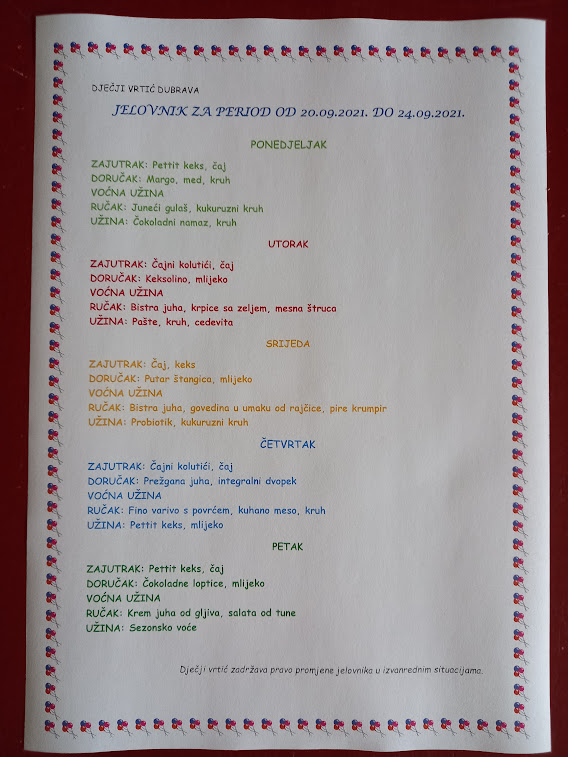 DJEČJI VRTIĆ DUBRAVA
JELOVNIK ZA PERIOD OD 20.09.2021. DO 24.09.2021.
PONEDJELJAK
ZAJUTRAK: Pettit keks, čaj
DORUČAK: Margo, med, kruh
VOĆNA UŽINA
RUČAK: Juneći gulaš, kukuruzni kruh
UŽINA: Čokoladni namaz, kruh
UTORAK
ZAJUTRAK: Čajni kolutići, čaj
DORUČAK: Keksolino, mlijeko
VOĆNA UŽINA
RUČAK: Bistra juha, krpice sa zeljem, mesna štruca
UŽINA: Pašte, kruh, cedevita
SRIJEDA
ZAJUTRAK: Čaj, keks
DORUČAK: Putar štangica, mlijeko
VOĆNA UŽINA
RUČAK: Bistra juha, govedina u umaku od rajčice, pire krumpir
UŽINA: Probiotik, kukuruzni kruh
ČETVRTAK
ZAJUTRAK: Čajni kolutići, čaj
DORUČAK: Prežgana juha, integralni dvopek
VOĆNA UŽINA
RUČAK: Fino varivo s povrćem, kuhano meso, kruh
UŽINA: Pettit keks, mlijeko
PETAK
ZAJUTRAK: Pettit keks, čaj
DORUČAK: Čokoladne loptice, mlijeko
VOĆNA UŽINA
RUČAK: Krem juha od gljiva, salata od tune
UŽINA: Sezonsko voće
Dječji vrtić zadržava pravo promjene jelovnika u izvanrednim situacijama.